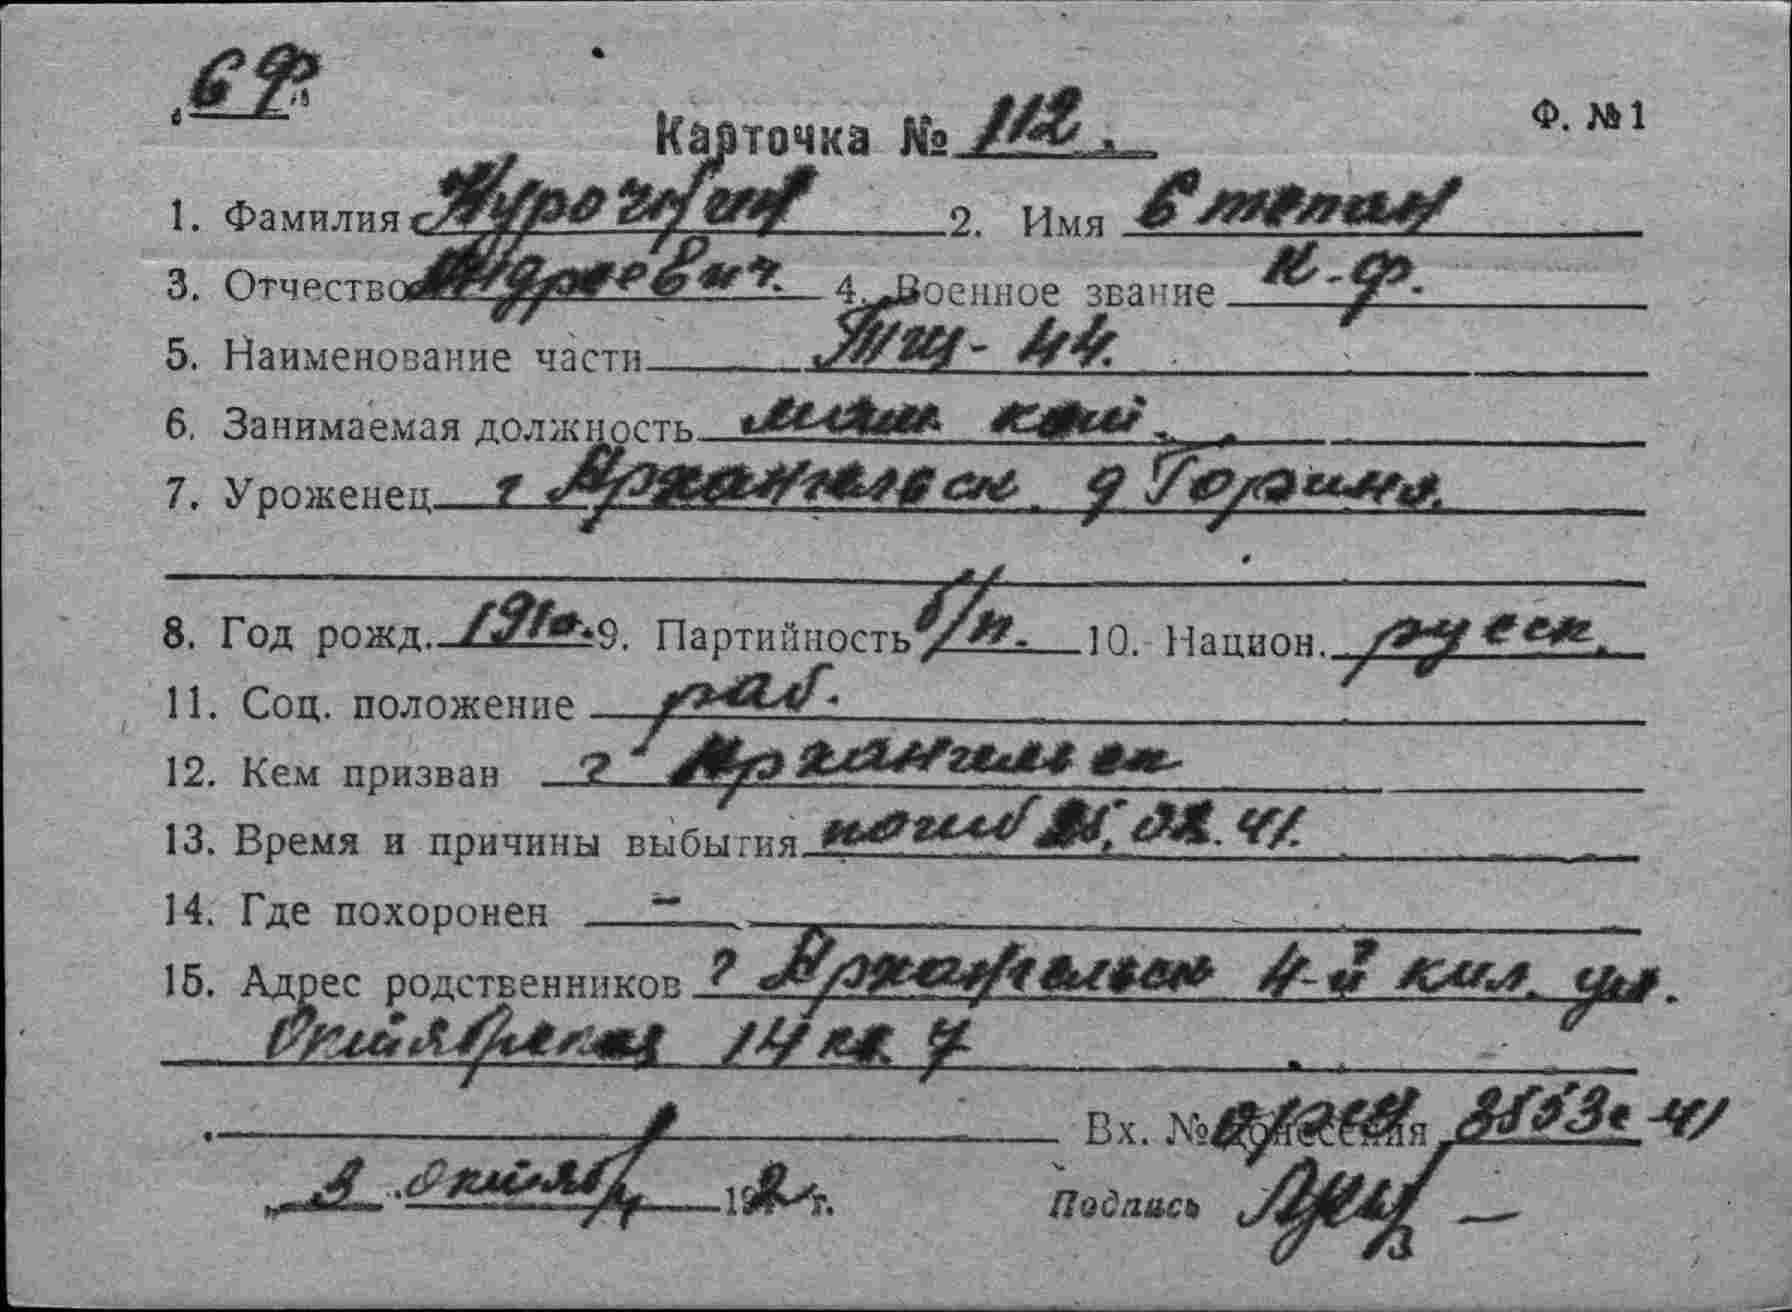 Ф. №1
Карточка № 112.
1. Фамилия Курочкин 2. Имя Степан
3. Отчество Андреевич. 4. Военное звание к-ф.
5. Наименование части ТЩ-44.
6. Занимаемая должность маш. коч.
7. Уроженец г Архангельск. д
8. Год рожд. 1910. 9. Партийность б/п. 10. Национ. русск.
11. Соц. положение раб.
12. Кем призван ? Архангельск
13. Время и причины выбытия погиб
14. Где похоронен –
15. Адрес родственников ? Архангельск 4-й ул.
Октябрьская 14 кв. 7
Вх. № донесения
октября г. Подпись